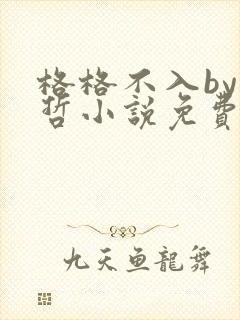 格格不入by
哲小說免費
九天鱼龍舞